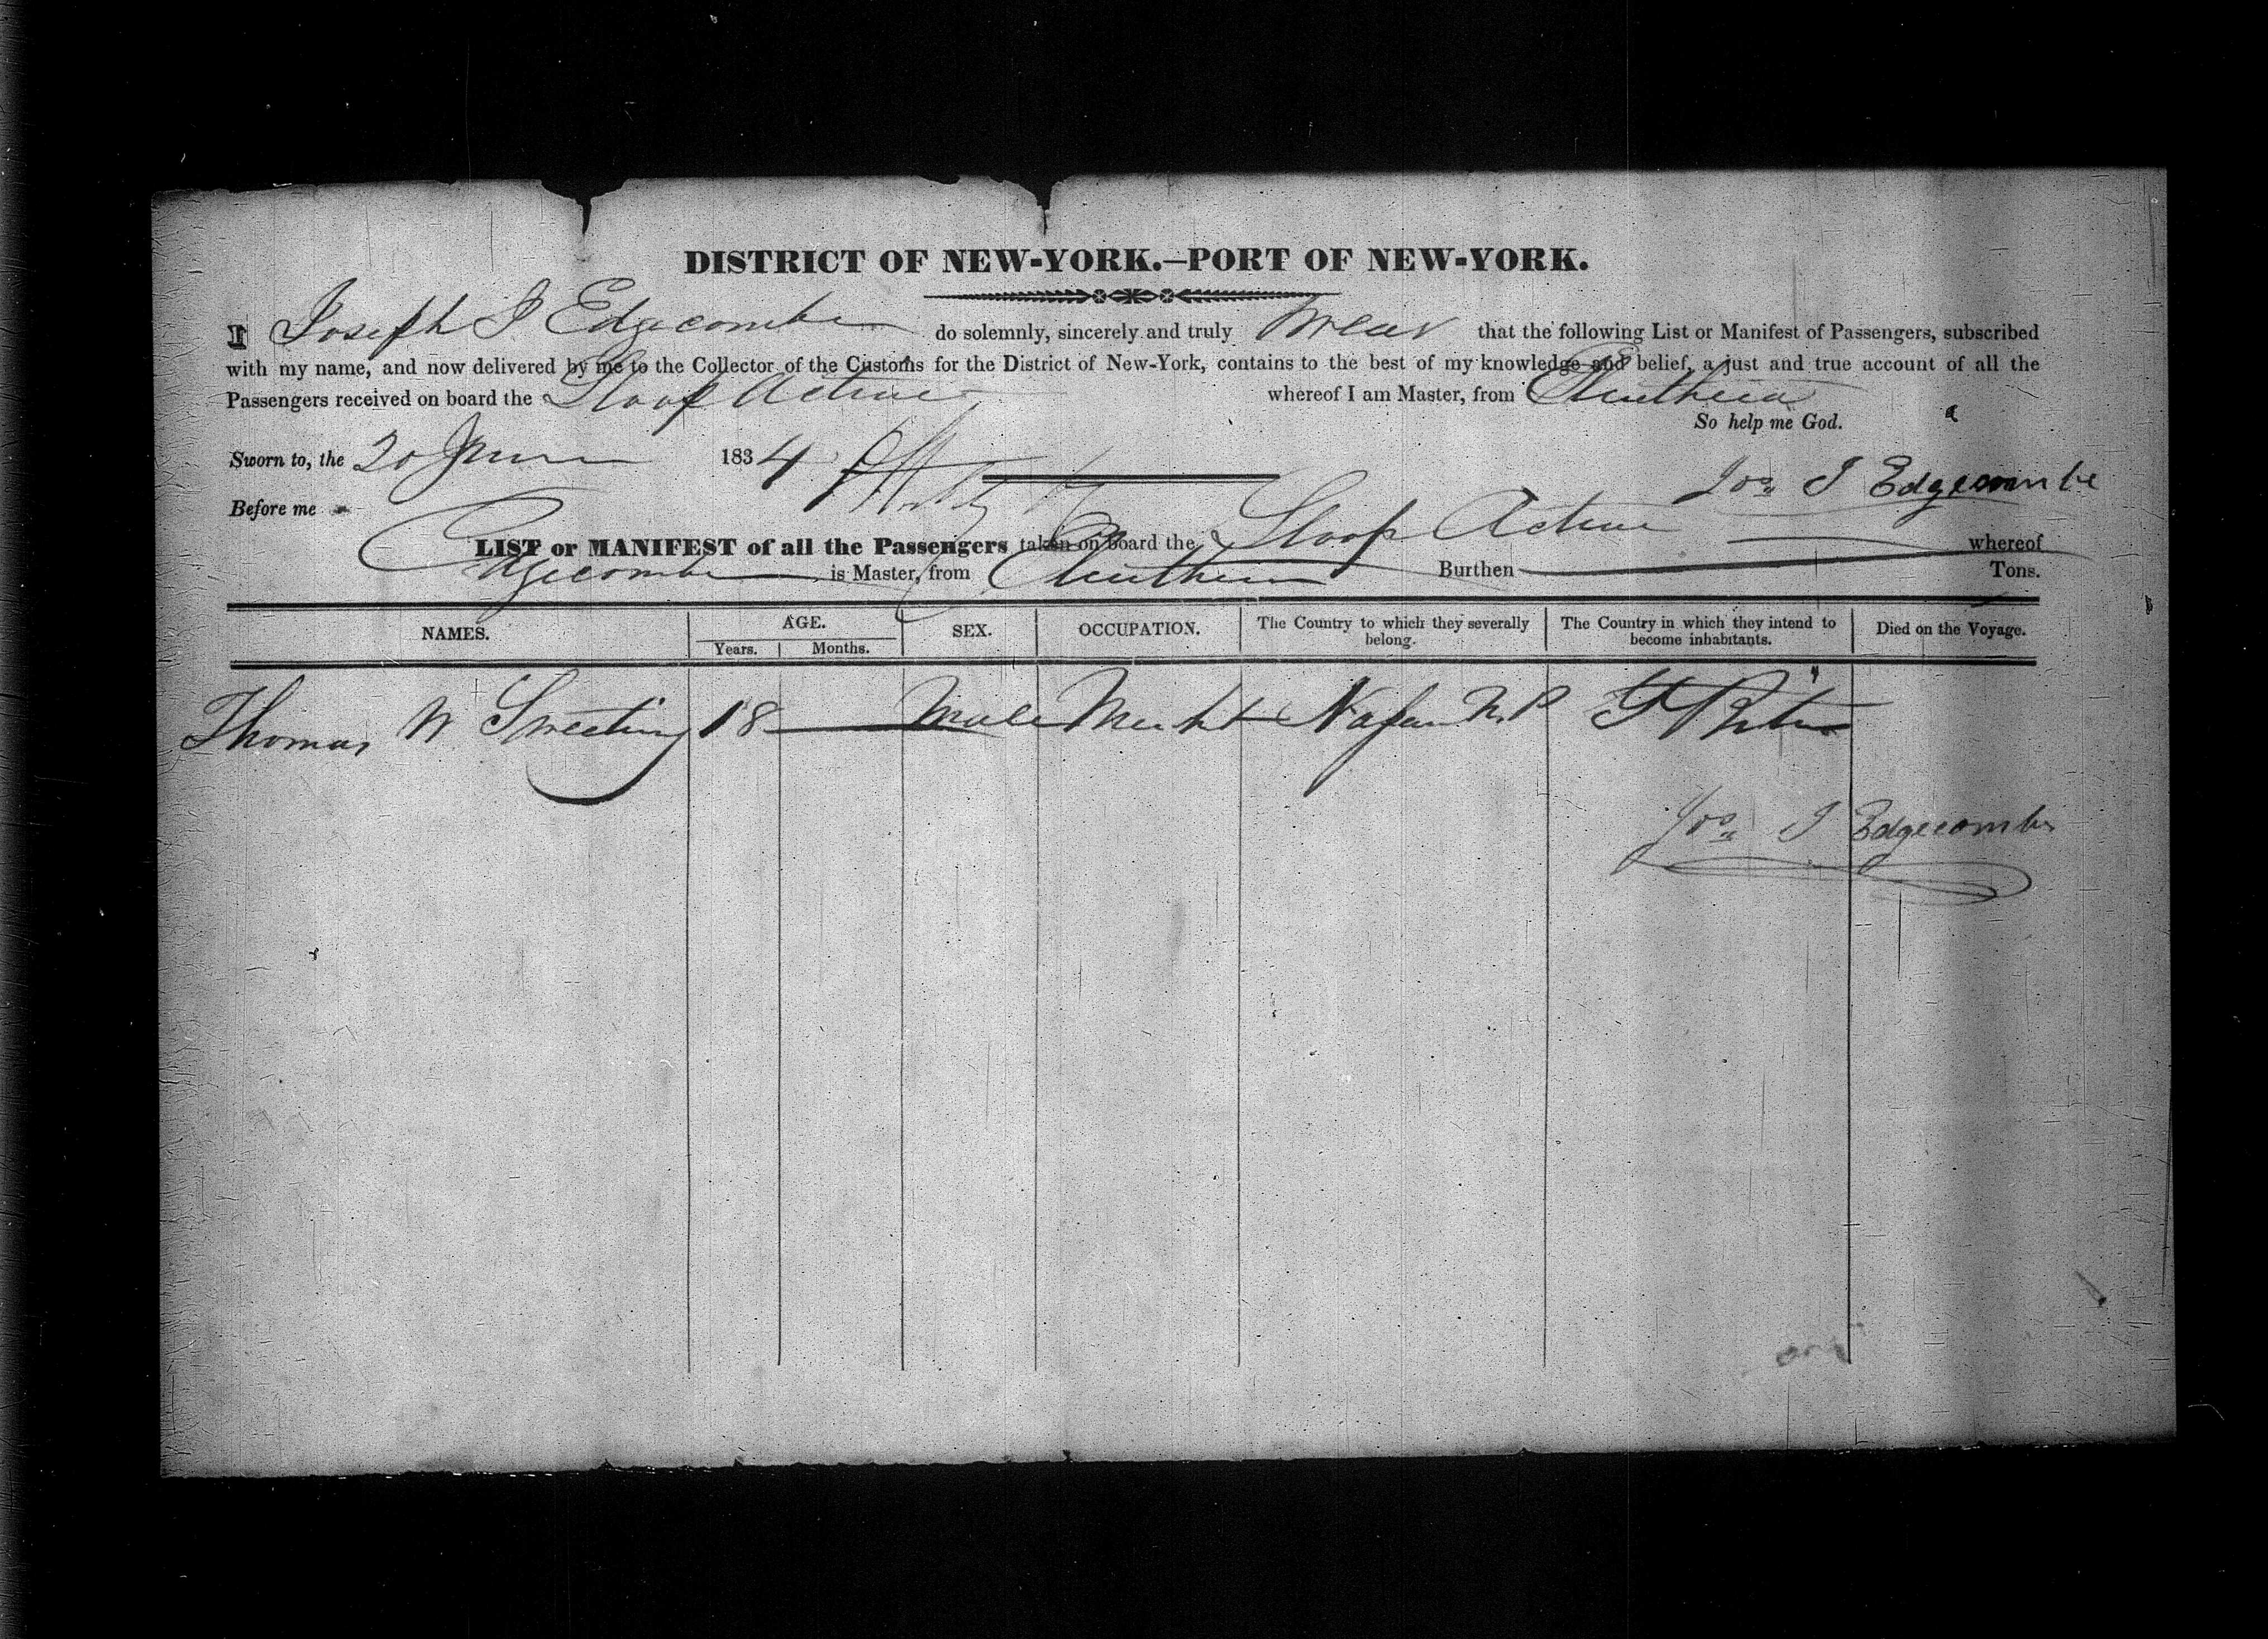 DISTRICT OF NEW-YORK.—PORT OF NEW-YORK.
I Joseph J Edgecombe do solemnly, sincerely and truly swear that the following List or Manifest of Passengers, subscribed
with my name, and now delivered by me to the Collector of the Customs for the District of New-York, contains to the best of my knowledge and belief, a just and true account of all the
Passengers received on board the Sloop Active whereof I am Master, from Eleuthera
So help me God.
Sworn to, the 20 June 1834
Jos J Edgecombe
Before me
LIST or MANIFEST of all the Passengers taken on board the Sloop Active whereof
Edgecombe is Master, from Eleuthera Burthen Tons.
NAMES. AGE. SEX. OCCUPATION. The Country to which they severally belong. The Country in which they intend to become inhabitants. Died on the Voyage.
Years. Months.
Thomas W Sweeting 18 Male Mercht Nassau N.P
Jos J Edgecombe